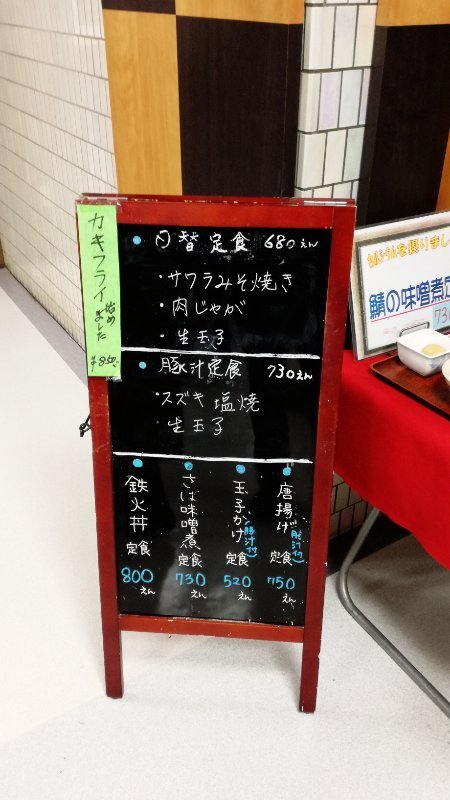 カキフライ始めました ¥850-
日替定食 680えん
・サワラみそ焼き
・肉じゃが
・生玉子
豚汁定食 730えん
・スズキ塩焼
・生玉子
唐揚げ定食(豚汁付) 750えん
玉子かけ定食(豚汁付) 520えん
さば味噌煮定食 730えん
鉄火丼定食 800えん
鯖の味噌煮定
730